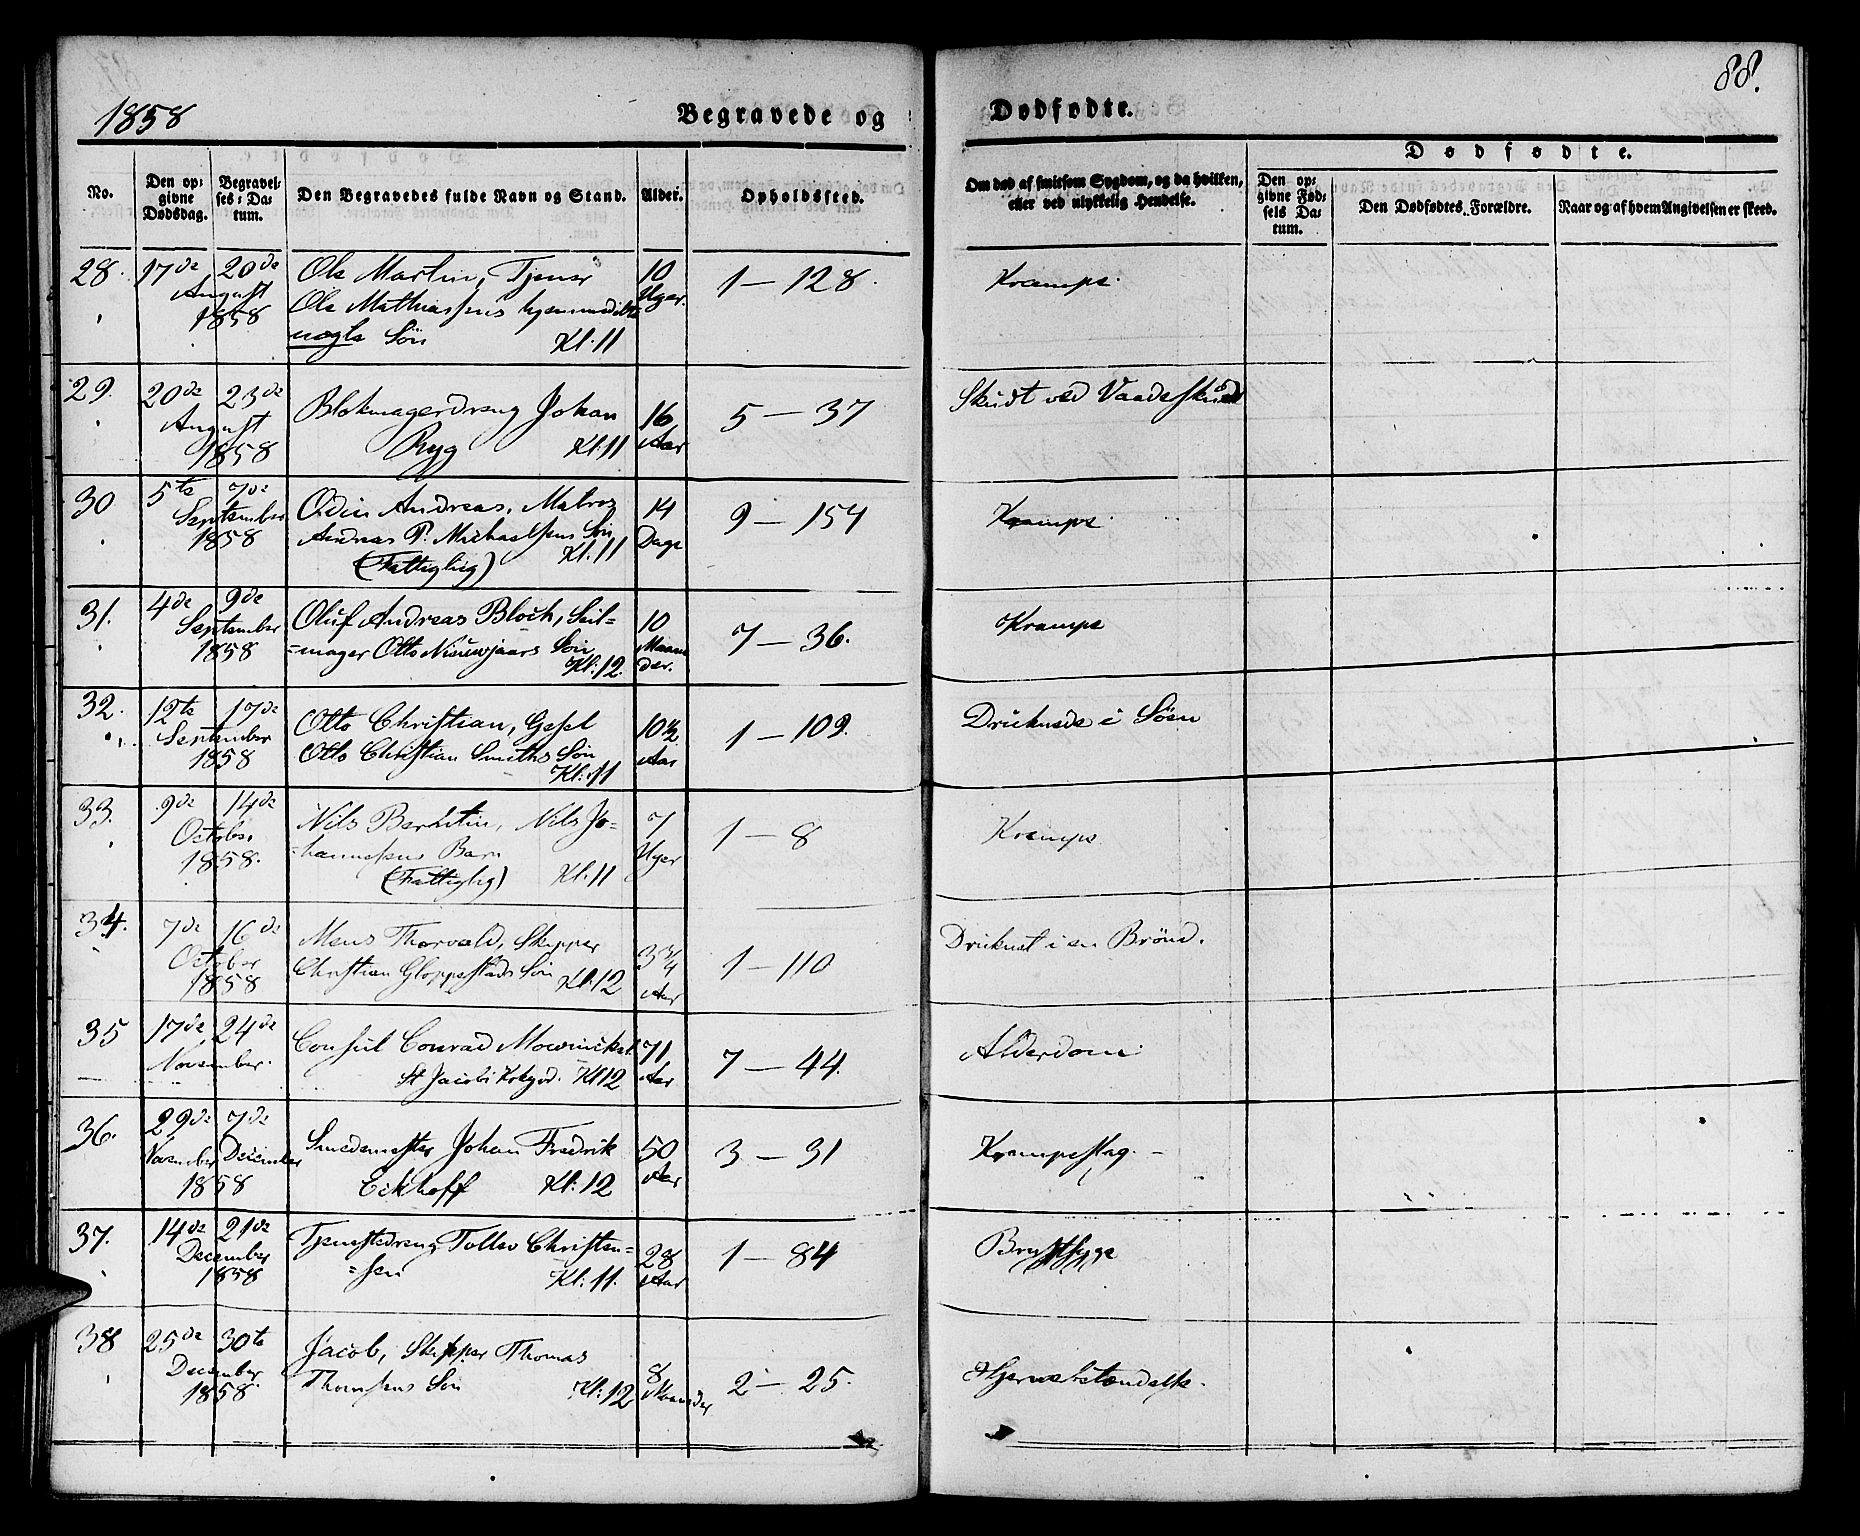 1858
Begravede og
Dødfødte.
88.
No.
Den op-
givne
Dødsdag.
Begravel-
ses-Da-
tum.
Den Begravedes fulde Navn og Stand.
Alder.
Opholdssted.
Om død af smitsom Sygdom, og da hvilken,
eller ved ulykkelig Hendelse.
Dødfødte.
Den op-
givne Fød-
sels Da-
tum.
Den Dødfødtes Forældre.
Naar og af hvem Angivelsen er skeed.
28.
17de
20de
August
1858
Ole Martin, Tjener
Ole Mathiassens
uægte Søn Kl. 11
10
Uger.
1 — 128.
Krampe.
29.
20de
23de
August
1858
Blokmagerdreng Johan
Ryg Kl. 11
16
Aar
5 — 37
Skudt ved Vaadeskud
30
5te
7de
September
1858
Odin Andreas, Matros
Andreas P. Michaelsens Søn
Kl. 11
(Fattiglig)
14
Dage
9 — 154
Krampe
31.
4de
9de
September
1858
Oluf Andreas Bloch, Seil=
=mager Otto Nieuwjaars Søn
Kl. 12.
10
Maane
der.
7 — 36.
Krampe
32.
12te
17de
September
1858
Otto Christian, Gesel
Otto Christian Smiths Søn
Kl. 11
10½
Aar
1 — 109.
Druknede i Søen
33.
9de
14de
October
1858.
Nils Berentin, Nils Jo=
=hannessens Barn
(Fattiglig) Kl. 11
7
Uger
1 — 8
Krampe
34.
7de
16de
October
1858
Mons Thorvald, Skipper
Christian Gloppestads Søn
Kl. 12
3¾
Aar
1 — 110
Druknet i en Brønd.
35
17de
24de
November.
Consul Conrad Mowinckel
St Jacobi Kirkgrd. Kl 12
71
Aar
7 — 44.
Alderdom
36.
29de
7de
November
December
1858
Smedemester Johan Fredrik
Eckhoff Kl. 12
50
Aar
3 — 31
Krampeslag.
37.
14de
21de
December
1858
Tjenestedreng Tollev Christen=
=sen Kl. 11.
28
Aar
1 — 84
Brystsyge
38
25de
30te
December
1858
Jacob, Skipper Thomas
Thomsens Søn Kl. 12
8
Maaneder
2 — 25.
Hjernebetændelse.